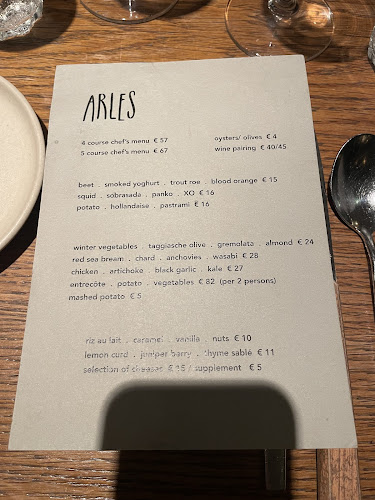 ARLES
4 course chef's menu € 57
5 course chef's menu € 67
oysters/ olives € 4
wine pairing € 40/45
beet . smoked yoghurt . trout roe . blood orange € 15
squid . sobrasada . panko . XO € 16
potato . hollandaise . pastrami € 16
winter vegetables . taggiasche olive . gremolata . almond € 24
red sea bream . chard . anchovies . wasabi € 28
chicken . artichoke . black garlic . kale € 27
entrecôte . potato . vegetables € 82 (per 2 persons)
mashed potato € 5
riz au lait . caramel . vanilla . nuts € 10
lemon curd . juniper berry . thyme sablé € 11
selection of cheeses € 15 / supplement € 5